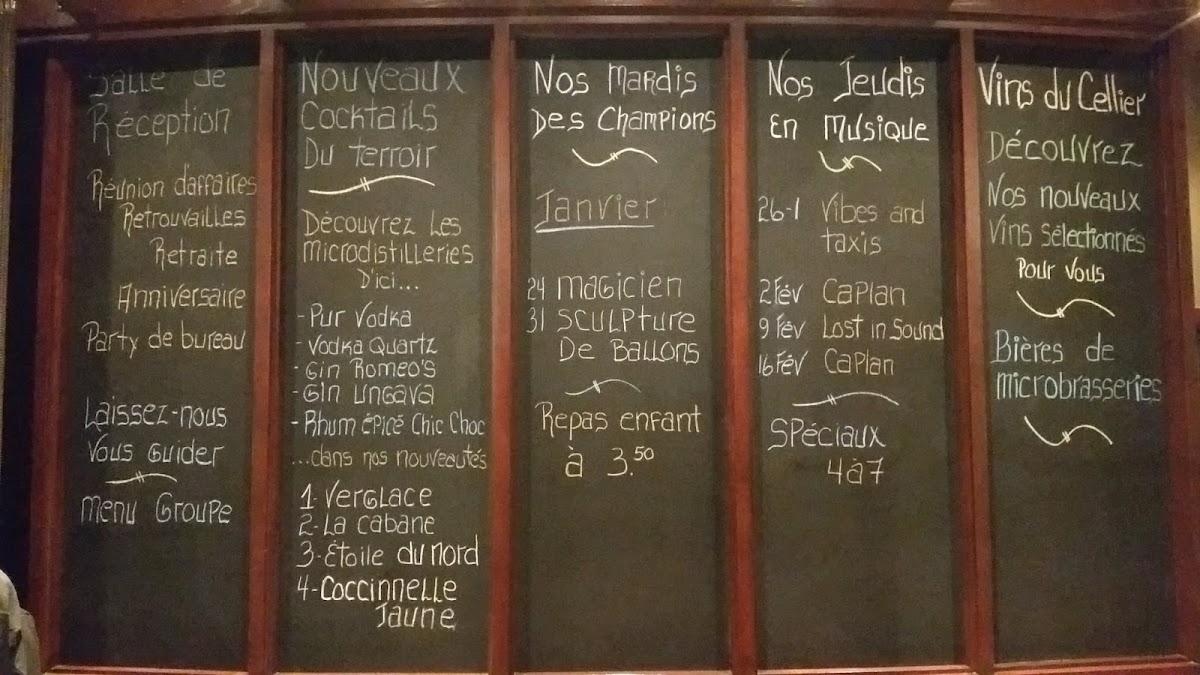 Salle de
Réception
Réunion d'affaires
Retrouvailles
Retraite
Anniversaire
Party de bureau
Laissez-nous
Vous Guider
Menu Groupe
Nouveaux
Cocktails
Du terroir
Découvrez Les
Microdistilleries
D'ici...
- Pur Vodka
- Vodka Quartz
- Gin Romeo's
- Gin Ungava
- Rhum Épicé Chic Choc
...dans nos nouveautés
1- Verglace
2- La cabane
3- Étoile du nord
4- Coccinnelle
Jaune
Nos Mardis
Des Champions
Janvier
24 Magicien
31 Sculpture
De Ballons
Repas enfant
à 3.50
Nos Jeudis
En Musique
26-1 Vibes and
taxis
2 Fév Caplan
9 Fév Lost in Sound
16 Fév Caplan
Spéciaux
4 à 7
Vins du Cellier
Découvrez
Nos nouveaux
Vins sélectionnés
Pour Vous
Bières de
microbrasseries